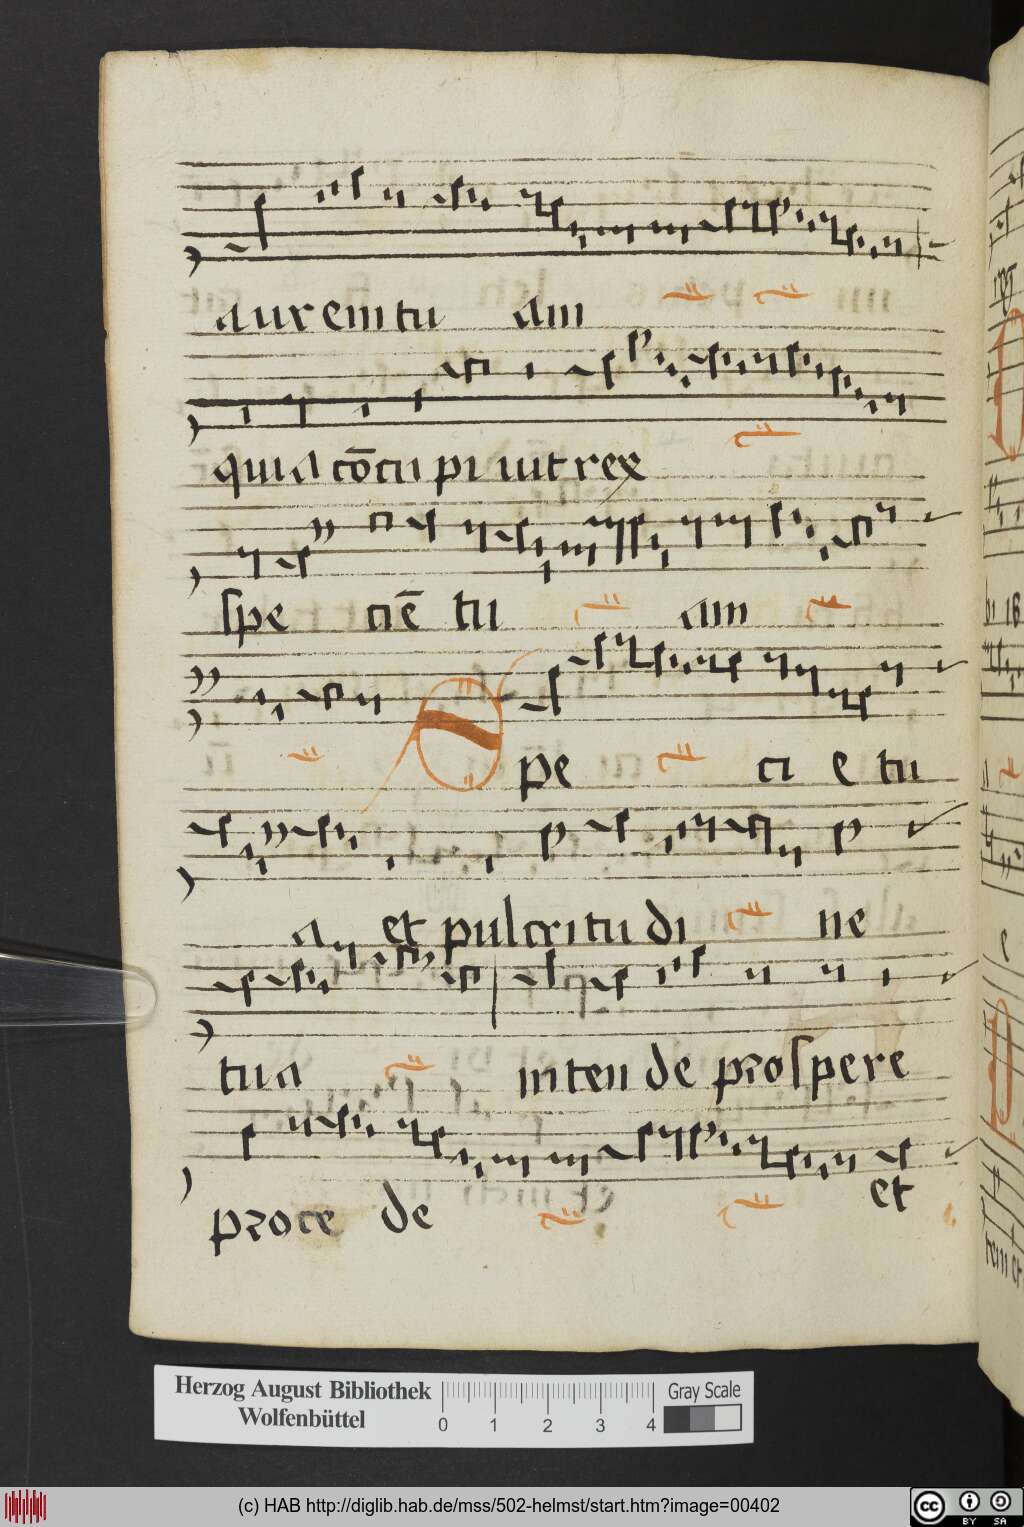 aurem tu am
quia cōcu pi uit rex
spe ciē tu am
Spe ci e tu
a et pulcritu di ne
tua inten de prospere
proce de et
Herzog August Bibliothek
Wolfenbüttel
0 1 2 3 4
Gray Scale
(c) HAB http://diglib.hab.de/mss/502-helmst/start.htm?image=00402
cc BY SA